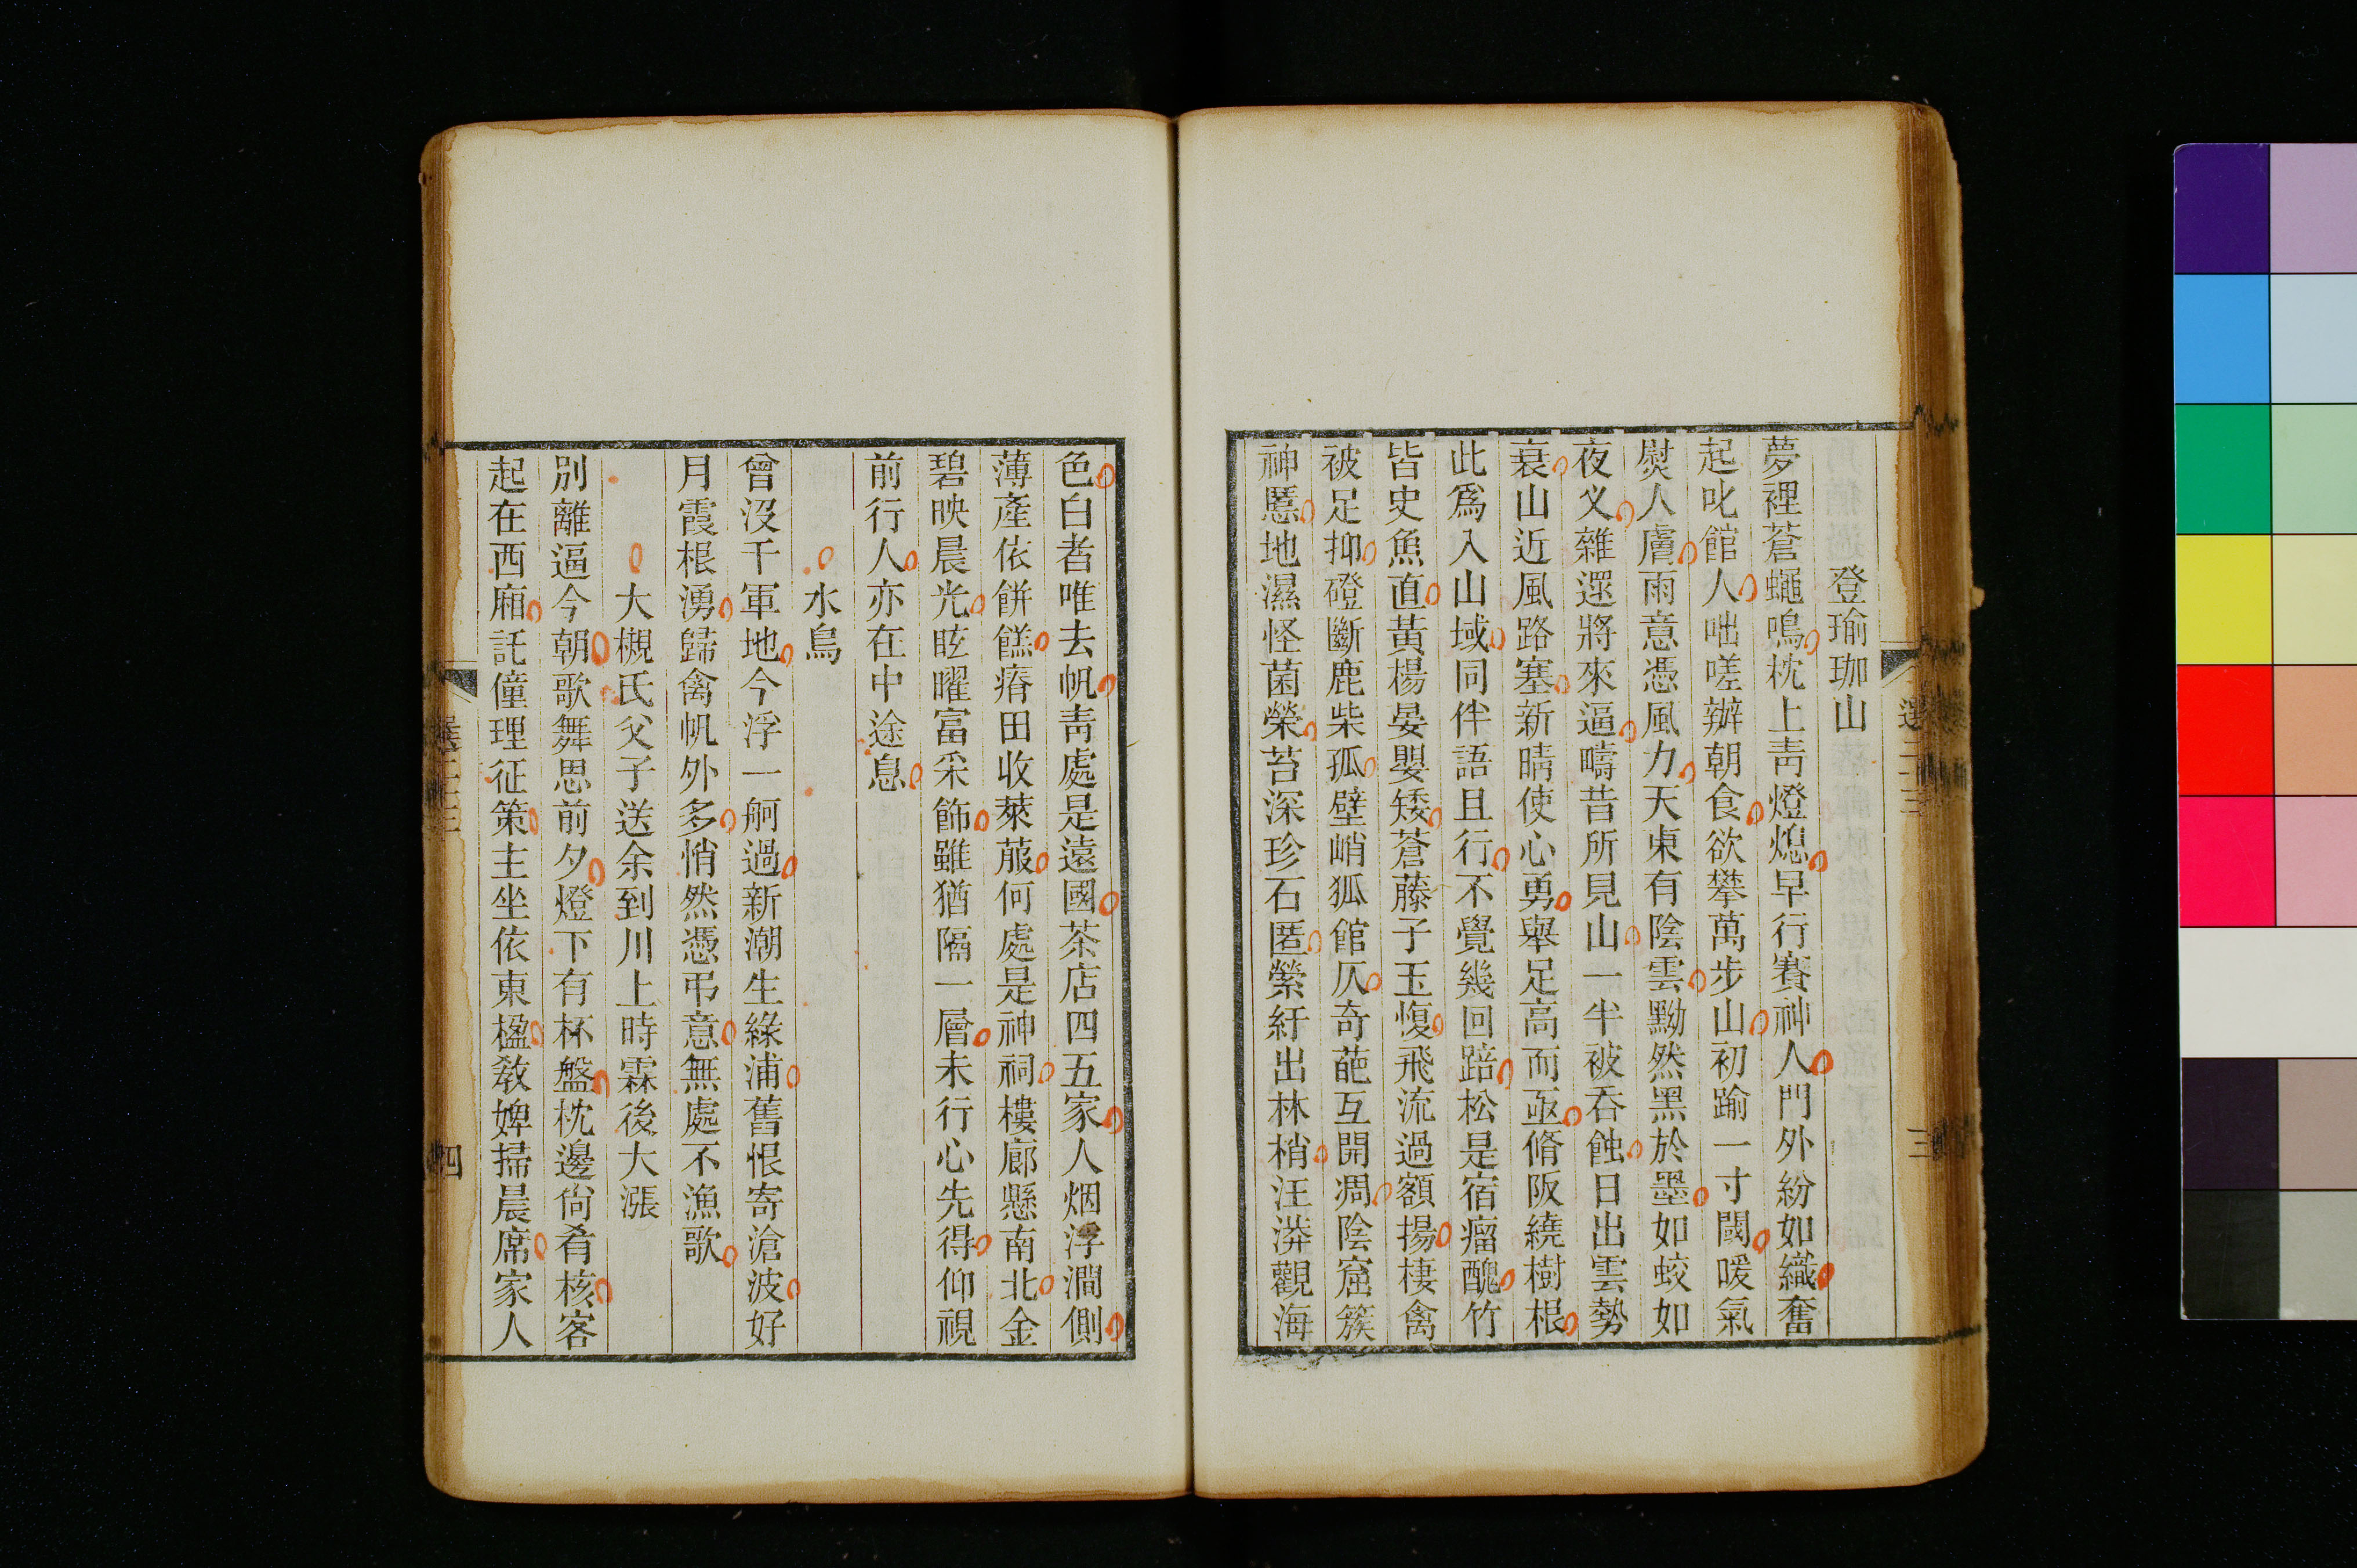 登瑜珈山
夢裡蒼蠅鳴枕上靑燈熄早行賽神人門外紛如織奮
起叱館人咄嗟辦朝食欲攀萬步山初踰一寸閾暖氣
熨人膚雨意憑風力天東有陰雲黝然黑於墨如蛟如
夜义雜遝將來逼疇昔所見山一半被呑蝕日出雲勢
衰山近風路塞新晴使心勇舉足高而亟脩阪繞樹根
此爲入山域同伴語且行不覺幾回踣松是宿瘤醜竹
皆史魚直黃楊晏嬰矮蒼藤子玉愎飛流過額揚棲禽
被足抑磴斷鹿柴孤壁峭狐館仄奇葩互開凋陰窟簇
神慝地濕怪菌榮苔深珍石匿縈紆出林梢汪漭觀海
選二十三
三
色白者唯去帆靑處是遠國茶店四五家人烟浮澗側
薄產依餅餻瘠田收萊菔何處是神祠樓廊懸南北金
碧映晨光眩曜富采飾雖猶隔一層未行心先得仰視
前行人亦在中途息
水鳥
曾沒千軍地今浮一舸過新潮生綠浦舊恨寄滄波好
月霞根湧歸禽帆外多悄然憑弔意無處不漁歌
大槻氏父子送余到川上時霖後大漲
別離逼今朝歌舞思前夕燈下有杯盤枕邊尙肴核客
起在西廂託僮理征策主坐依東楹敎婢掃晨席家人
四